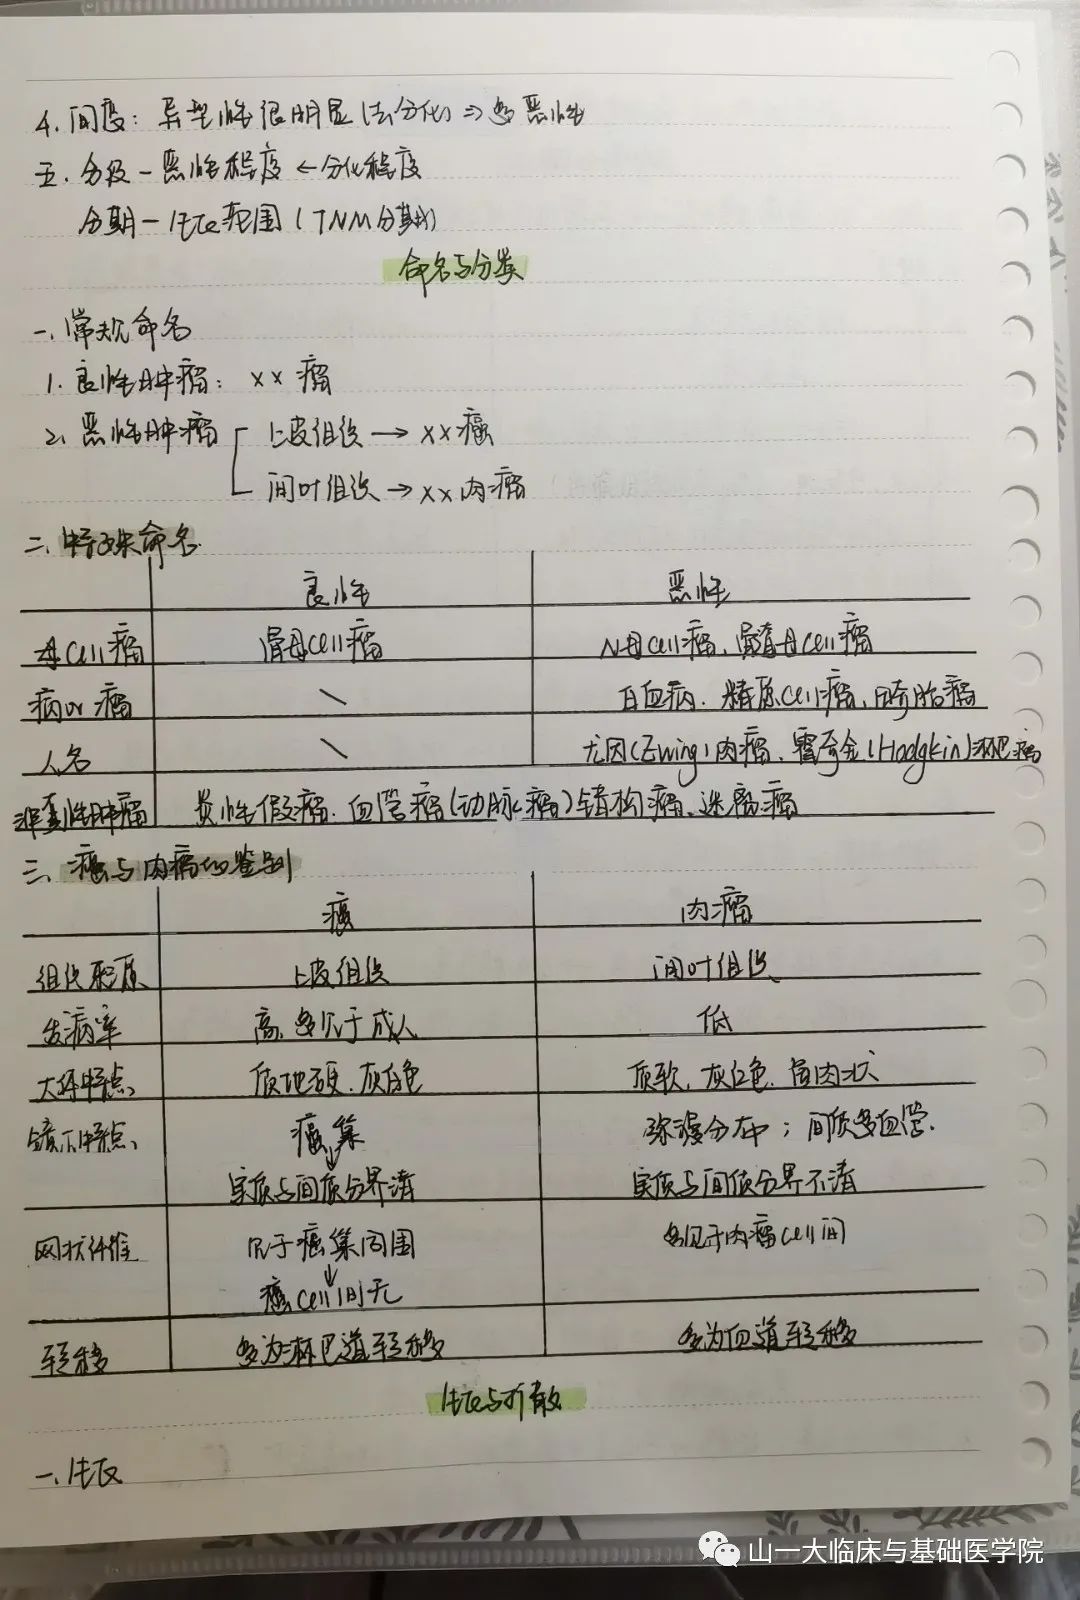 4. 间变：异型性很明显(去分化)⇒多恶性
五. 分级－恶性程度←分化程度
分期－生长范围(TNM分期)
命名与分类
一. 常规命名
1. 良性肿瘤：××瘤
2. 恶性肿瘤 上皮组织→××癌
间叶组织→××肉瘤
二. 特殊命名.
良性 恶性
母cell瘤 骨母cell瘤 N母cell瘤、髓母cell瘤
病or瘤 \ 白血病. 精原cell瘤、畸胎瘤
人名 \ 尤因(Ewing)肉瘤、霍奇金(Hodgkin)淋巴瘤
非真性肿瘤 炎性假瘤. 血管瘤(动脉瘤)错构瘤、迷离瘤
三、癌与肉瘤的鉴别
癌 肉瘤
组织来源 上皮组织 间叶组织
发病率 高、多见于成人 低
大体特点 质地硬. 灰白色 质软, 灰白色. 鱼肉状
镜下特点 癌巢 弥漫分布；间质多血管.
实质与间质分界清 实质与间质分界不清
网状纤维 见于癌巢周围 多见于肉瘤cell间
癌cell间无
转移 多为淋巴道转移 多为血道转移
生长与扩散
一、生长
山一大临床与基础医学院